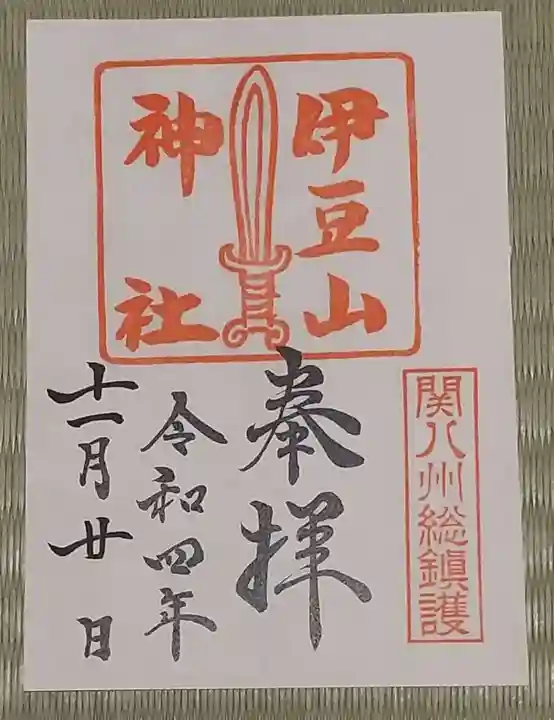 伊豆山
神社
関八州総鎮護
奉拝
令和四年
十一月廿日